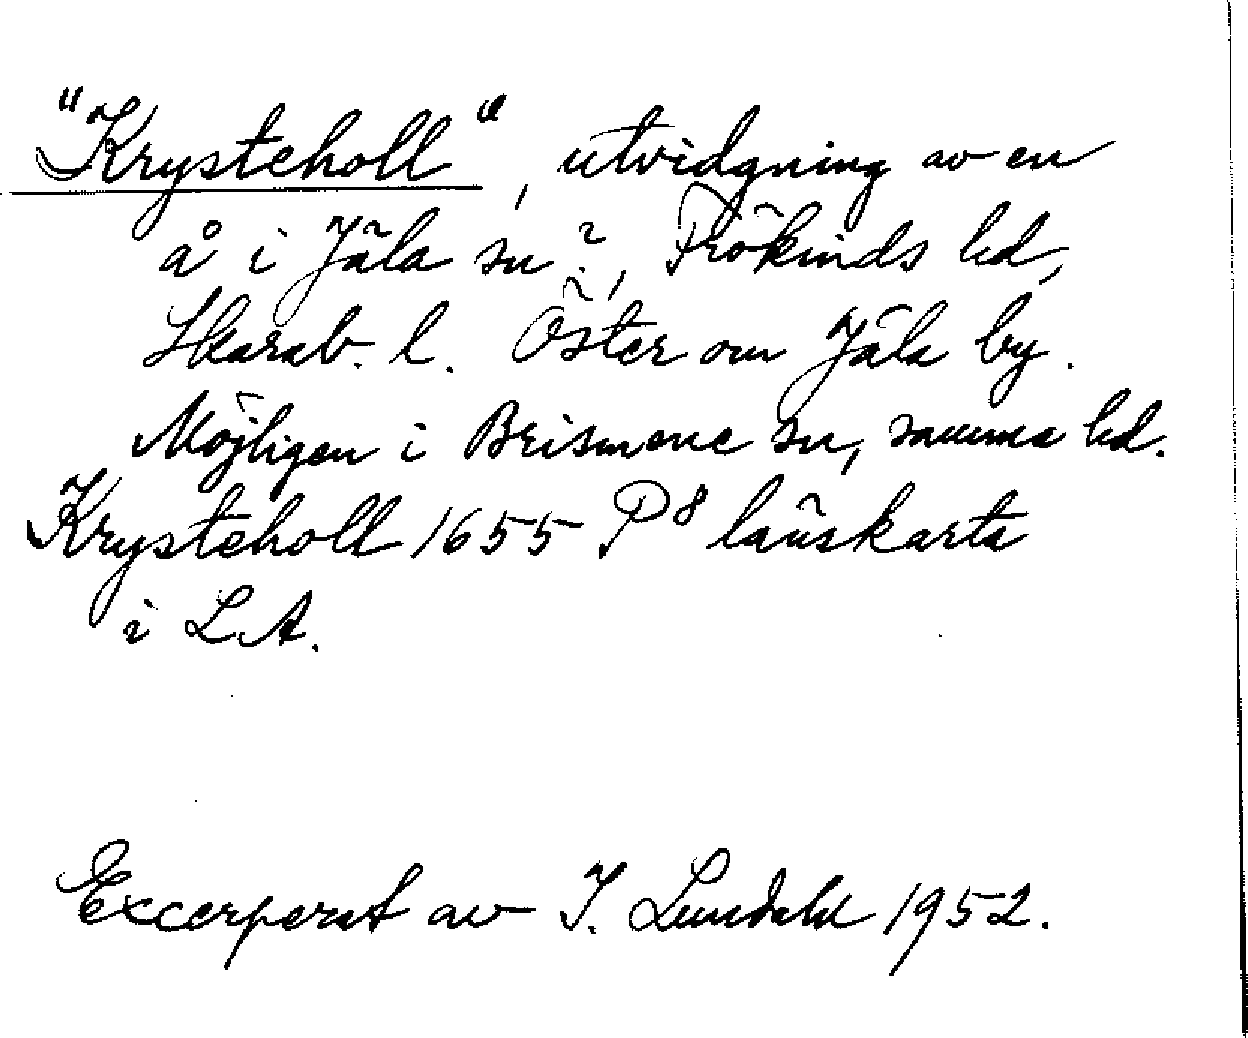 "Krysteholl", utvidgning av en
å i Jäla sn?, Frökinds hd,
Skarab. l. Öster om Jäla by.
Möjligen i Brismene sn, samma hd.
Krysteholl 1655 P8 länskarta
i L.A.
Excerperat av I. Lundahl 1952.